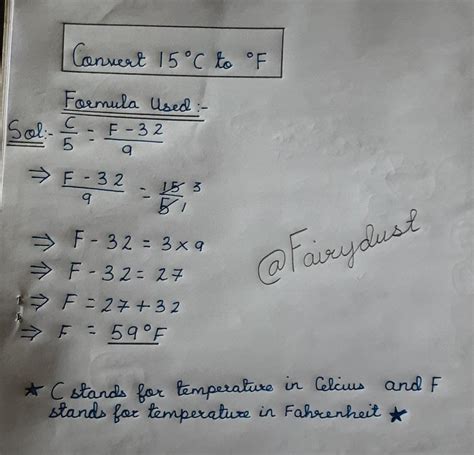 Convert 15°C to °F
Formula Used:-
Sol:- C/5 = F-32/9
⇒ F-32/9 = 15/5 3/1
⇒ F-32 = 3×9
⇒ F-32 = 27
⇒ F = 27+32
⇒ F = 59°F
@Fairydust
★ C stands for temperature in Celcius and F
stands for temperature in Fahrenheit ★